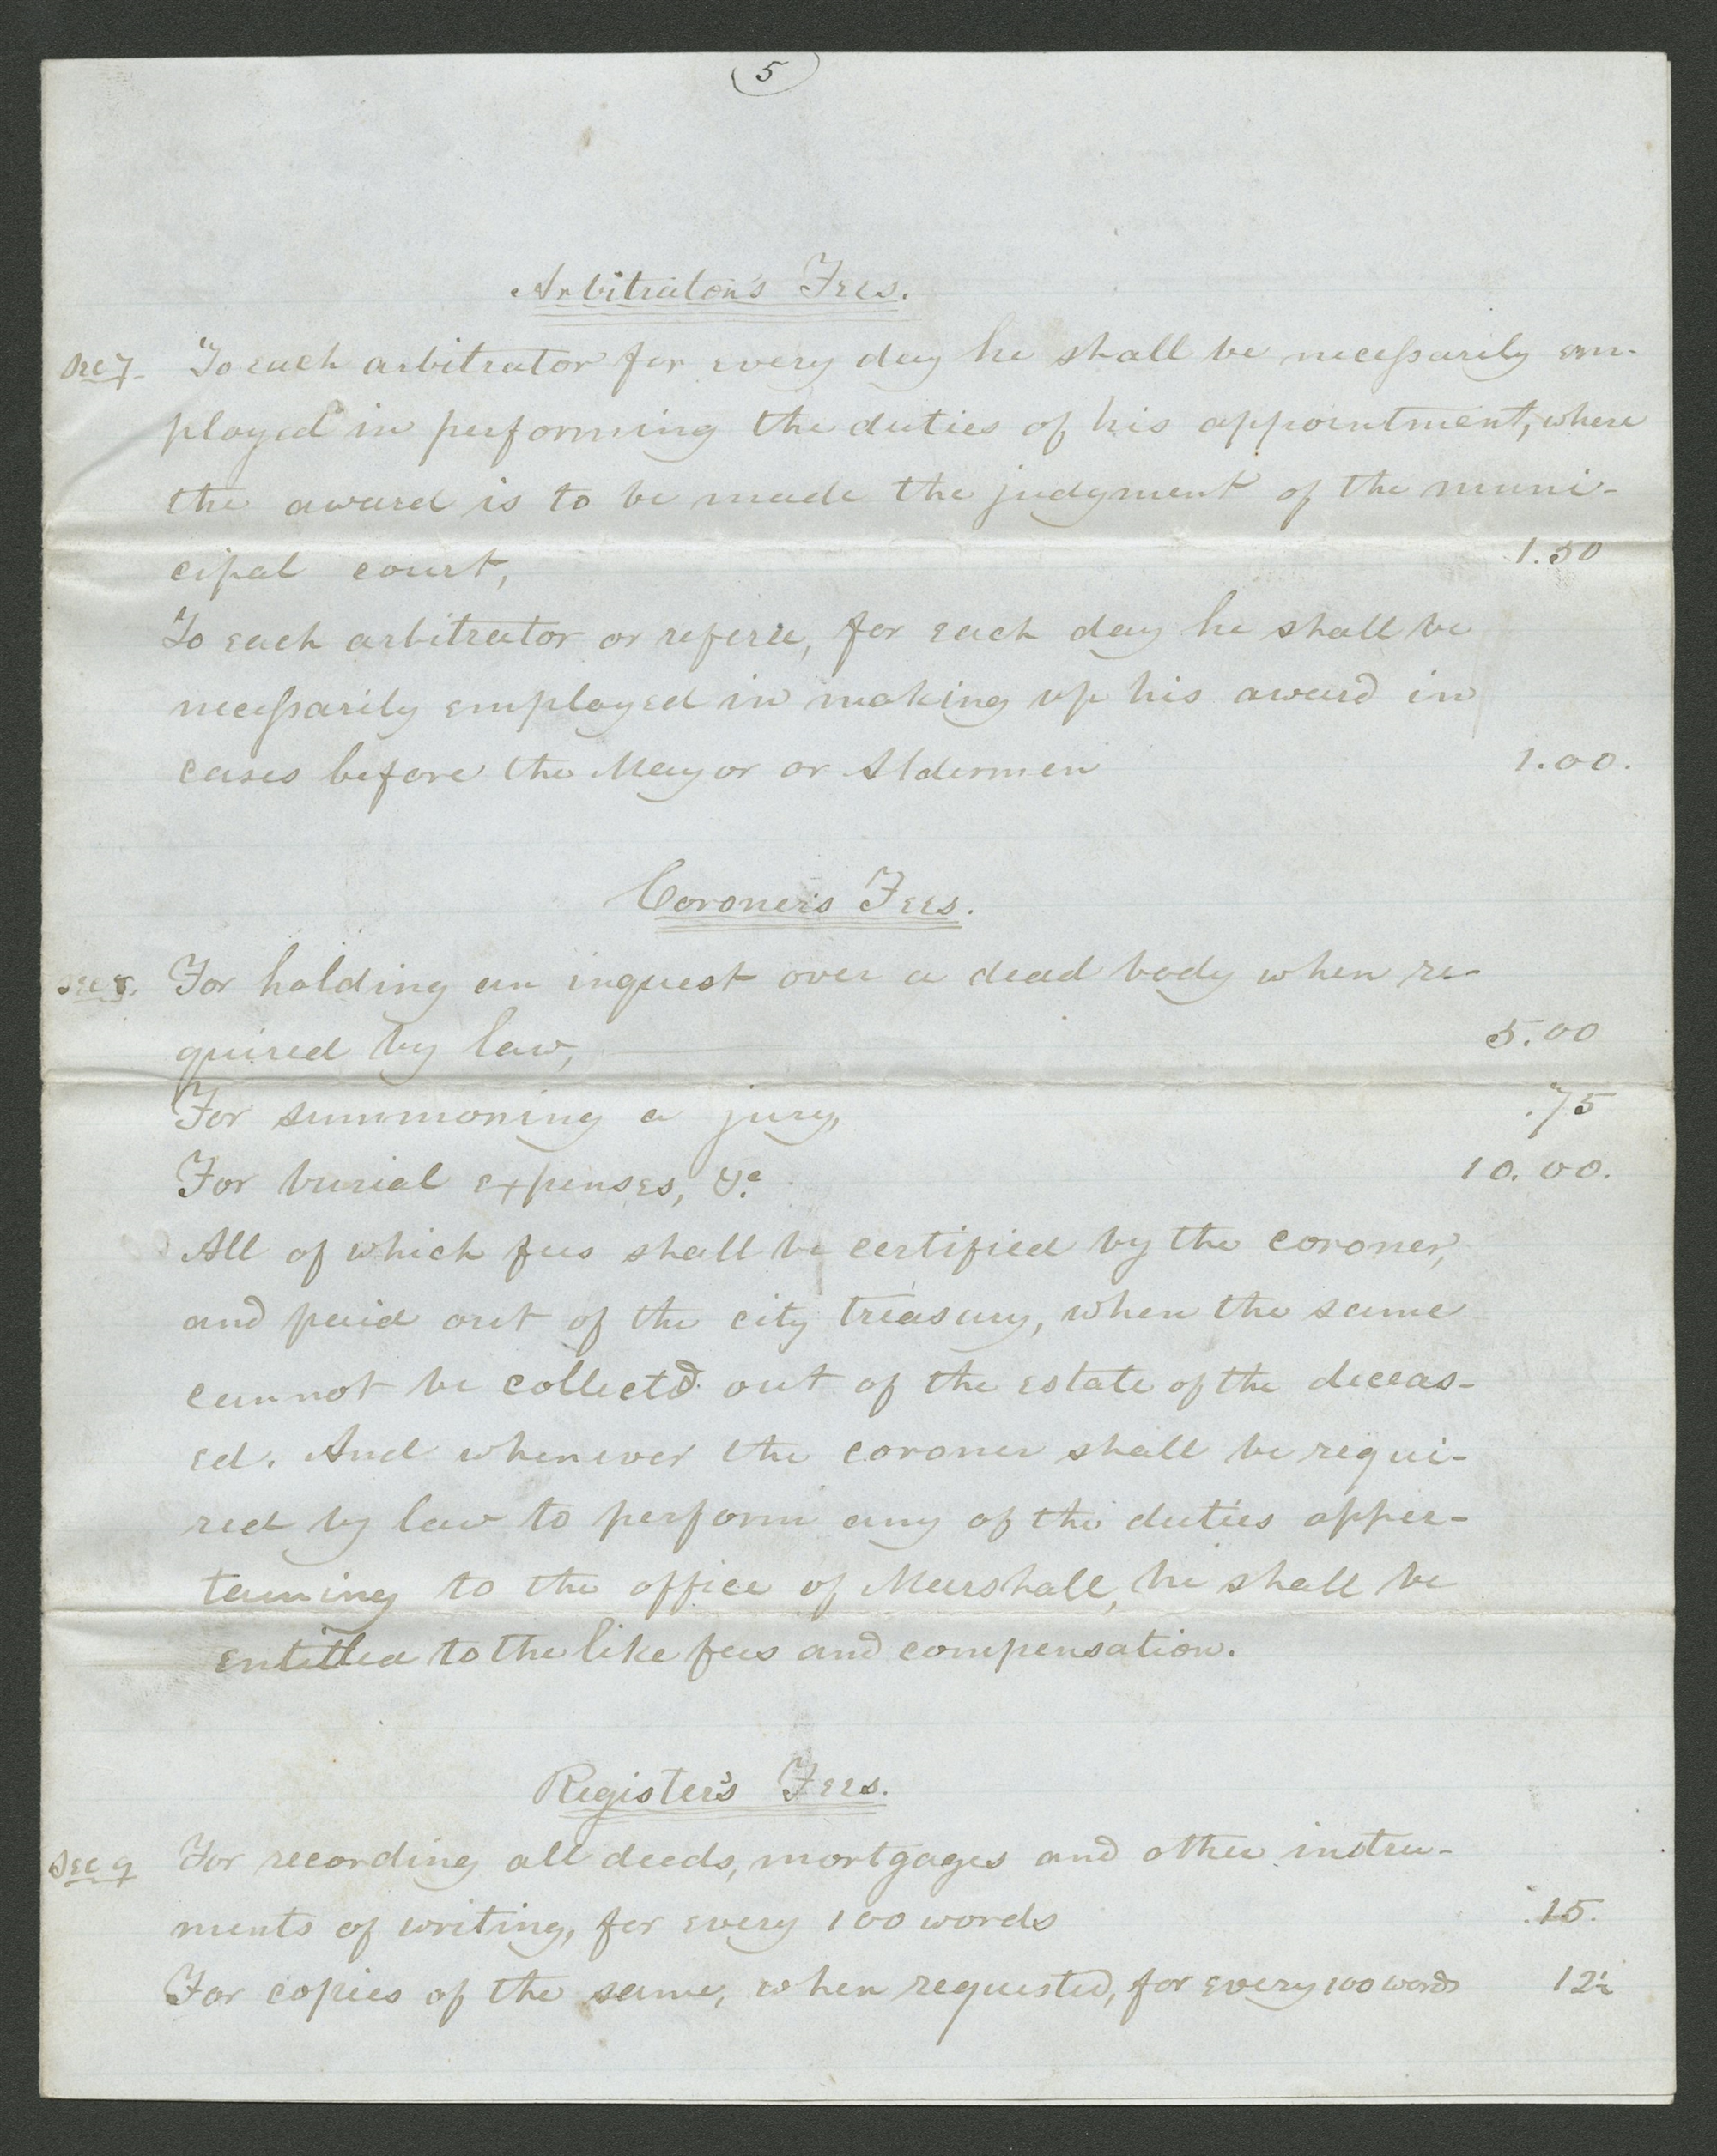 5
Arbitrator's Fees.
Sec 7. To each arbitrator for every day he shall be necessarily em-
ployed in performing the duties of his appointment, where
the award is to be made the judgment of the muni-
cipal court, 1.50
To each arbitrator or referee, for each day he shall be
necessarily employed in making up his award in
cases before the Mayor or Aldermen 1.00.
Coroner's Fees.
Sec 8. For holding an inquest over a dead body when re-
quired by law, 5.00
For summoning a jury, .75
For burial expenses, &c 10.00.
All of which fees shall be certified by the coroner,
and paid out of the city treasury, when the same
cannot be collectd out of the estate of the deceas-
ed. And whenever the coroner shall be requi-
red by law to perform any of the duties apper-
taining to the office of Marshall, he shall be
entitled to the like fees and compensation.
Register's Fees.
Sec 9 For recording all deeds, mortgages and other instru-
ments of writing, for every 100 words .15.
For copies of the same, when requested, for every 100 words 12½